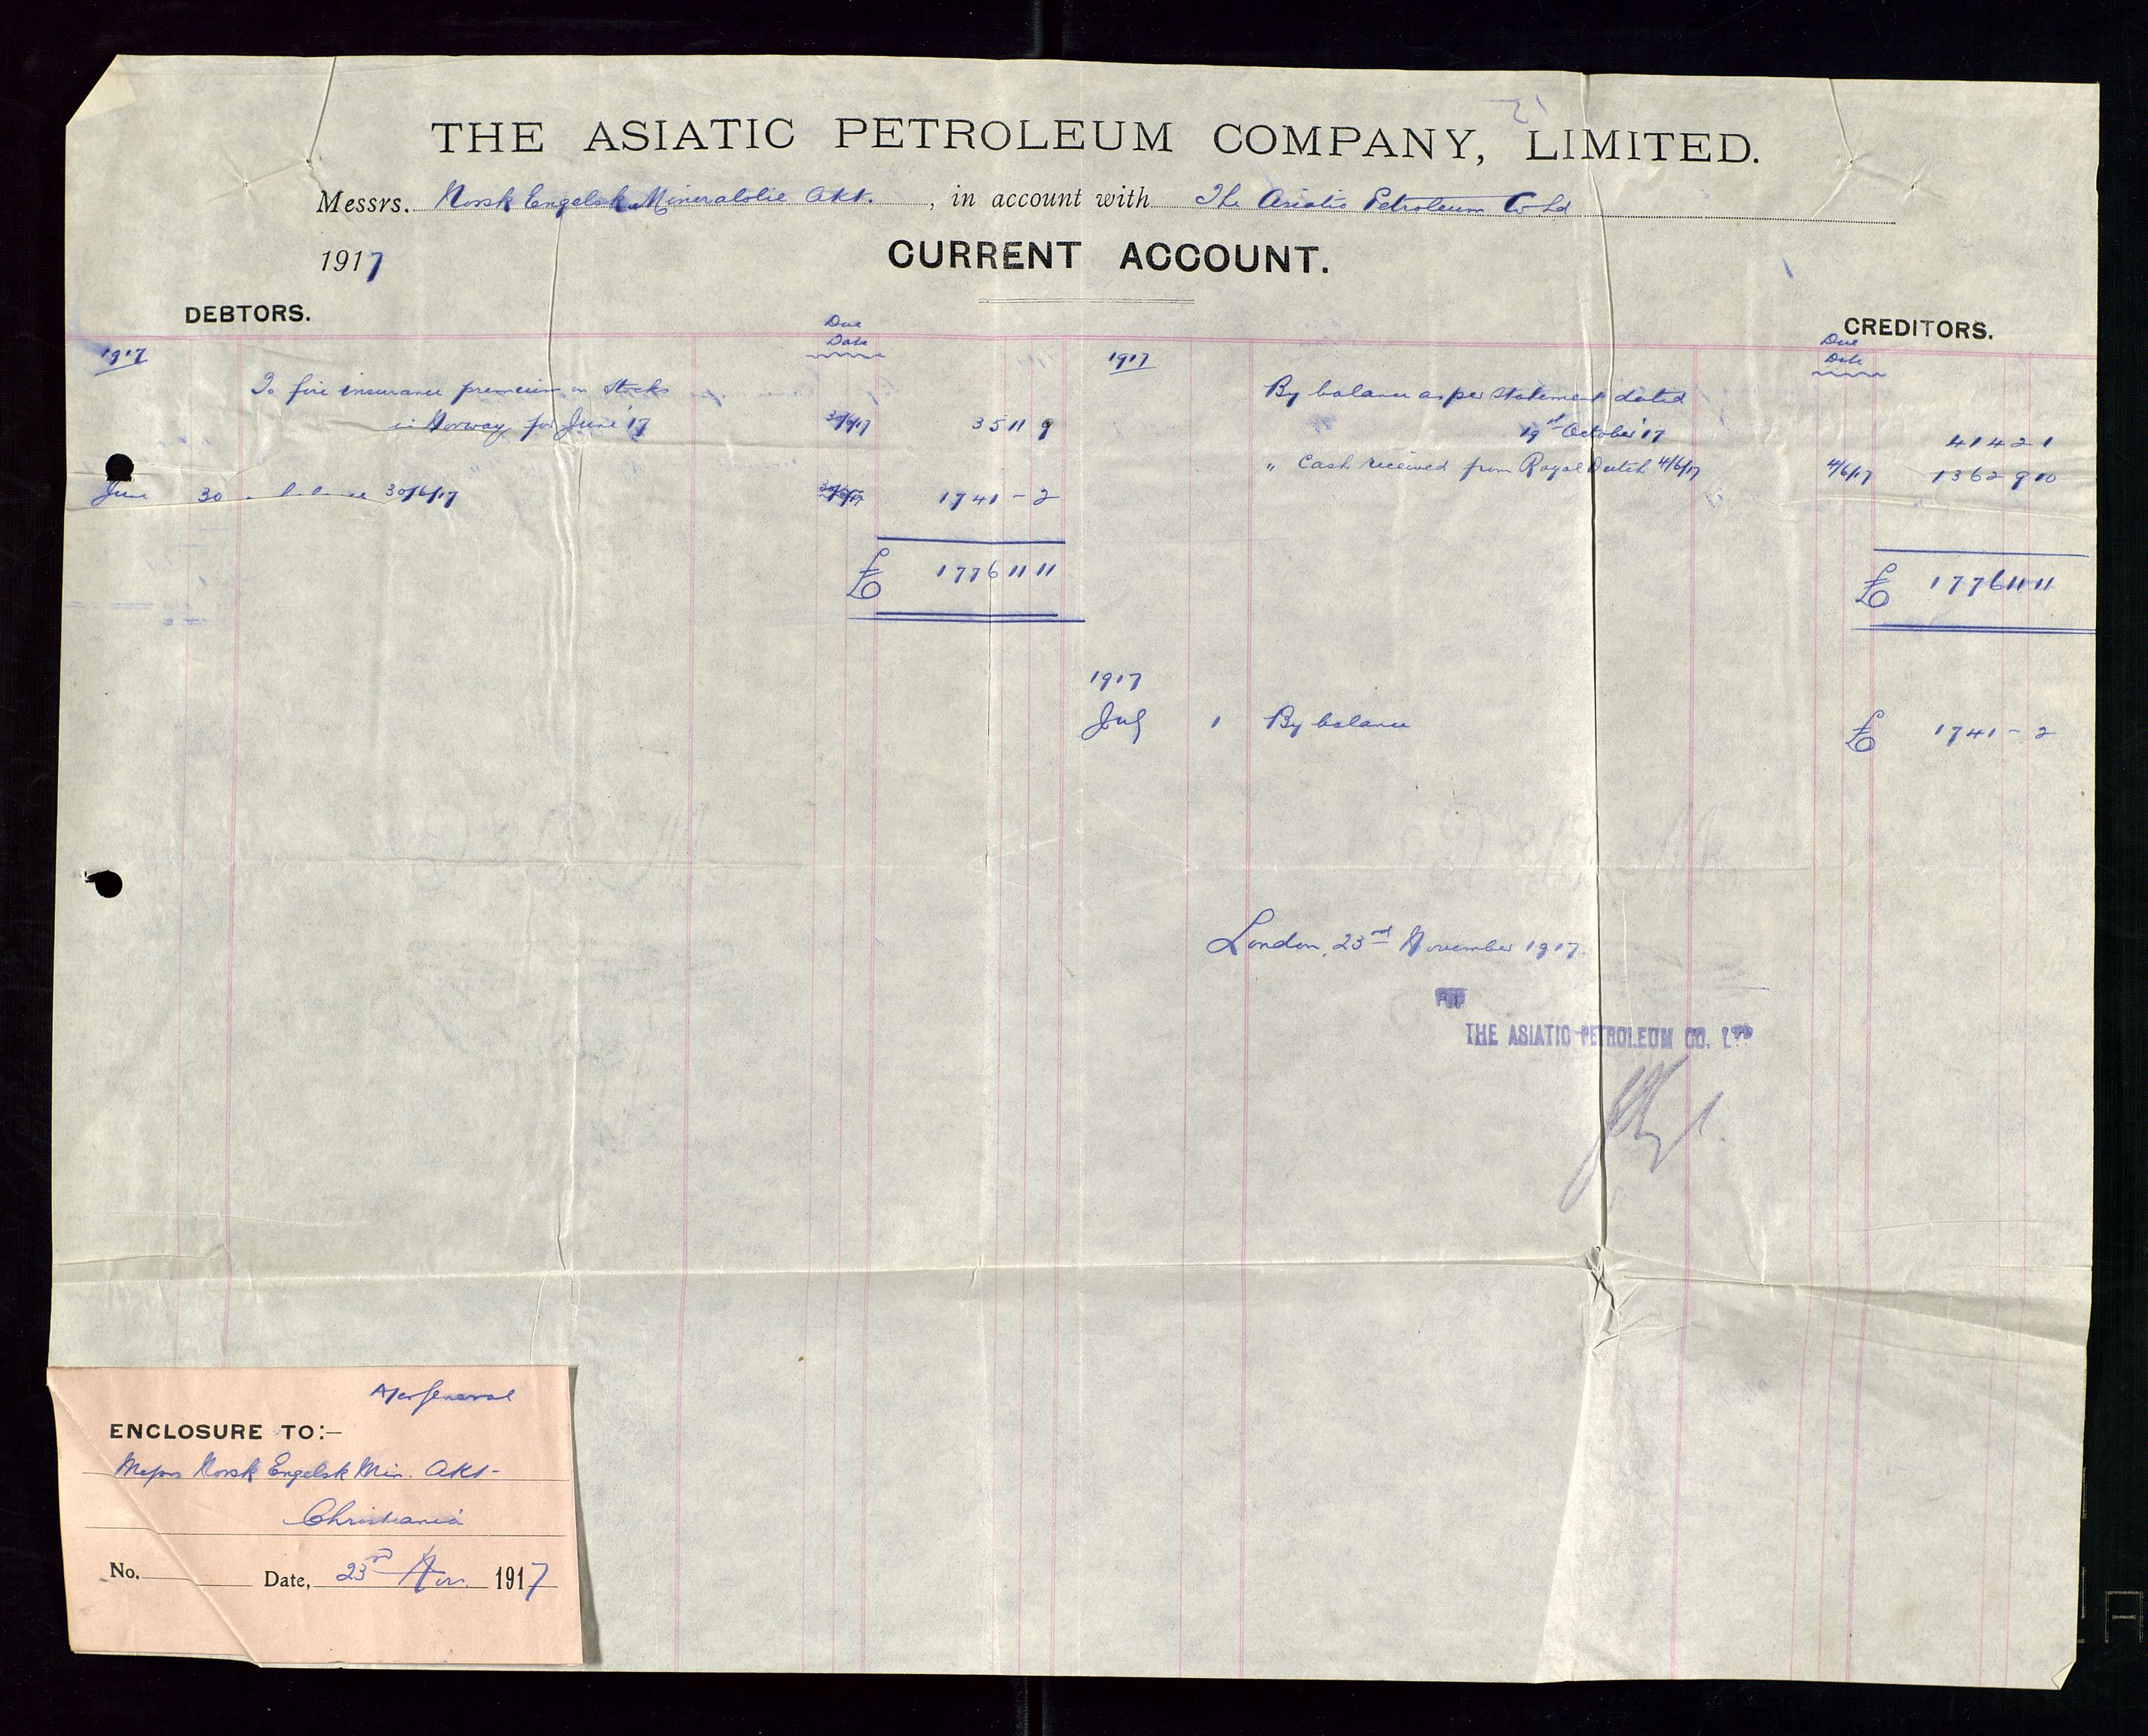 THE ASIATIC PETROLEUM COMPANY, LIMITED.
Messrs. Norsk Engelsk Mineralolie Akt. , in account with The Asiatic Petroleum Co Ld
1917 CURRENT ACCOUNT.
DEBTORS. CREDITORS.
Due Date
Due Date
1917
To fire insurance premium on stocks
in Norway for June '17 30/6/17 35 11 9
June 30 balance 30/6/17 30/6/17 1741 - 2
£ 1776 11 11
1917
By balance as per statement dated
19st October '17 414 2 1
" Cash received from Royal Dutch 4/6/17 4/6/17 1362 9 10
£ 1776 11 11
1917
July 1 By balance £ 1741 - 2
London, 23rd November 1917.
FOR
THE ASIATIC PETROLEUM CO. LTD
ENCLOSURE TO:-
Messrs Norsk Engelsk Min. Akt-
Christiania
No. Date, 23rd Nov. 1917